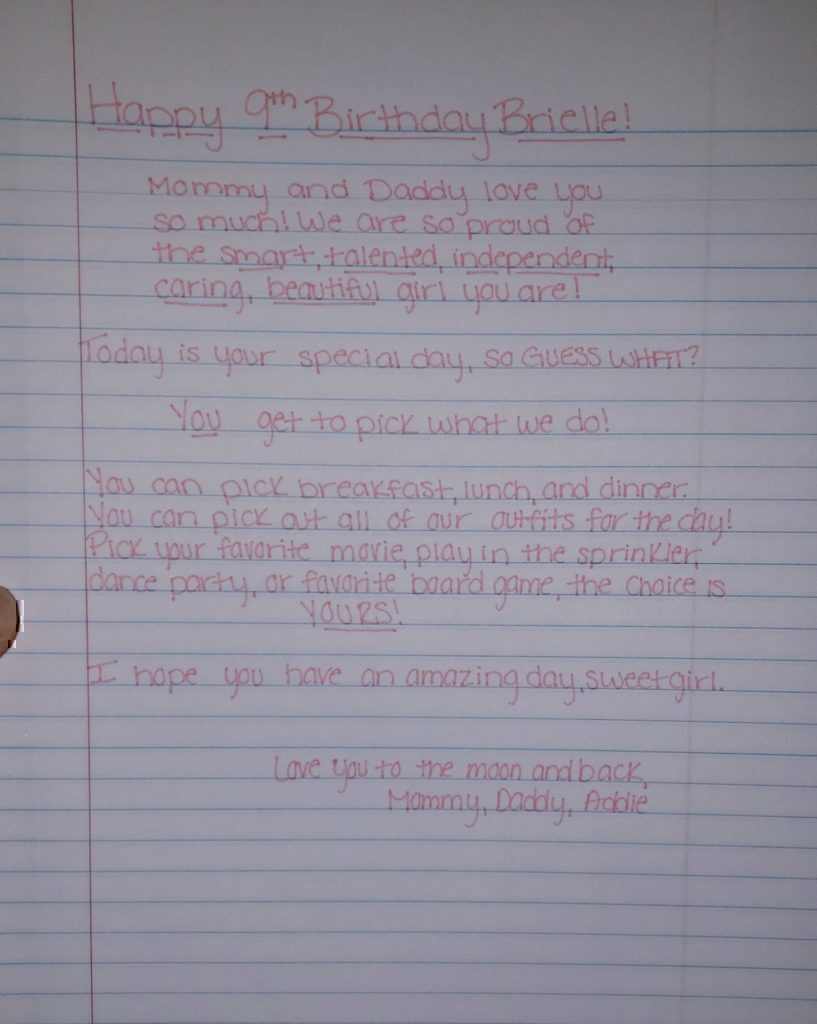 Happy 9th Birthday Brielle!
Mommy and Daddy love you
so much! We are so proud of
the smart, talented, independent,
caring, beautiful girl you are!
Today is your special day, so GUESS WHAT?
You get to pick what we do!
You can pick breakfast, lunch, and dinner.
You can pick out all of our outfits for the day!
Pick your favorite movie, play in the sprinkler,
dance party, or favorite board game, the choice is
YOURS!
I hope you have an amazing day, sweet girl.
Love you to the moon and back,
Mommy, Daddy, Addie